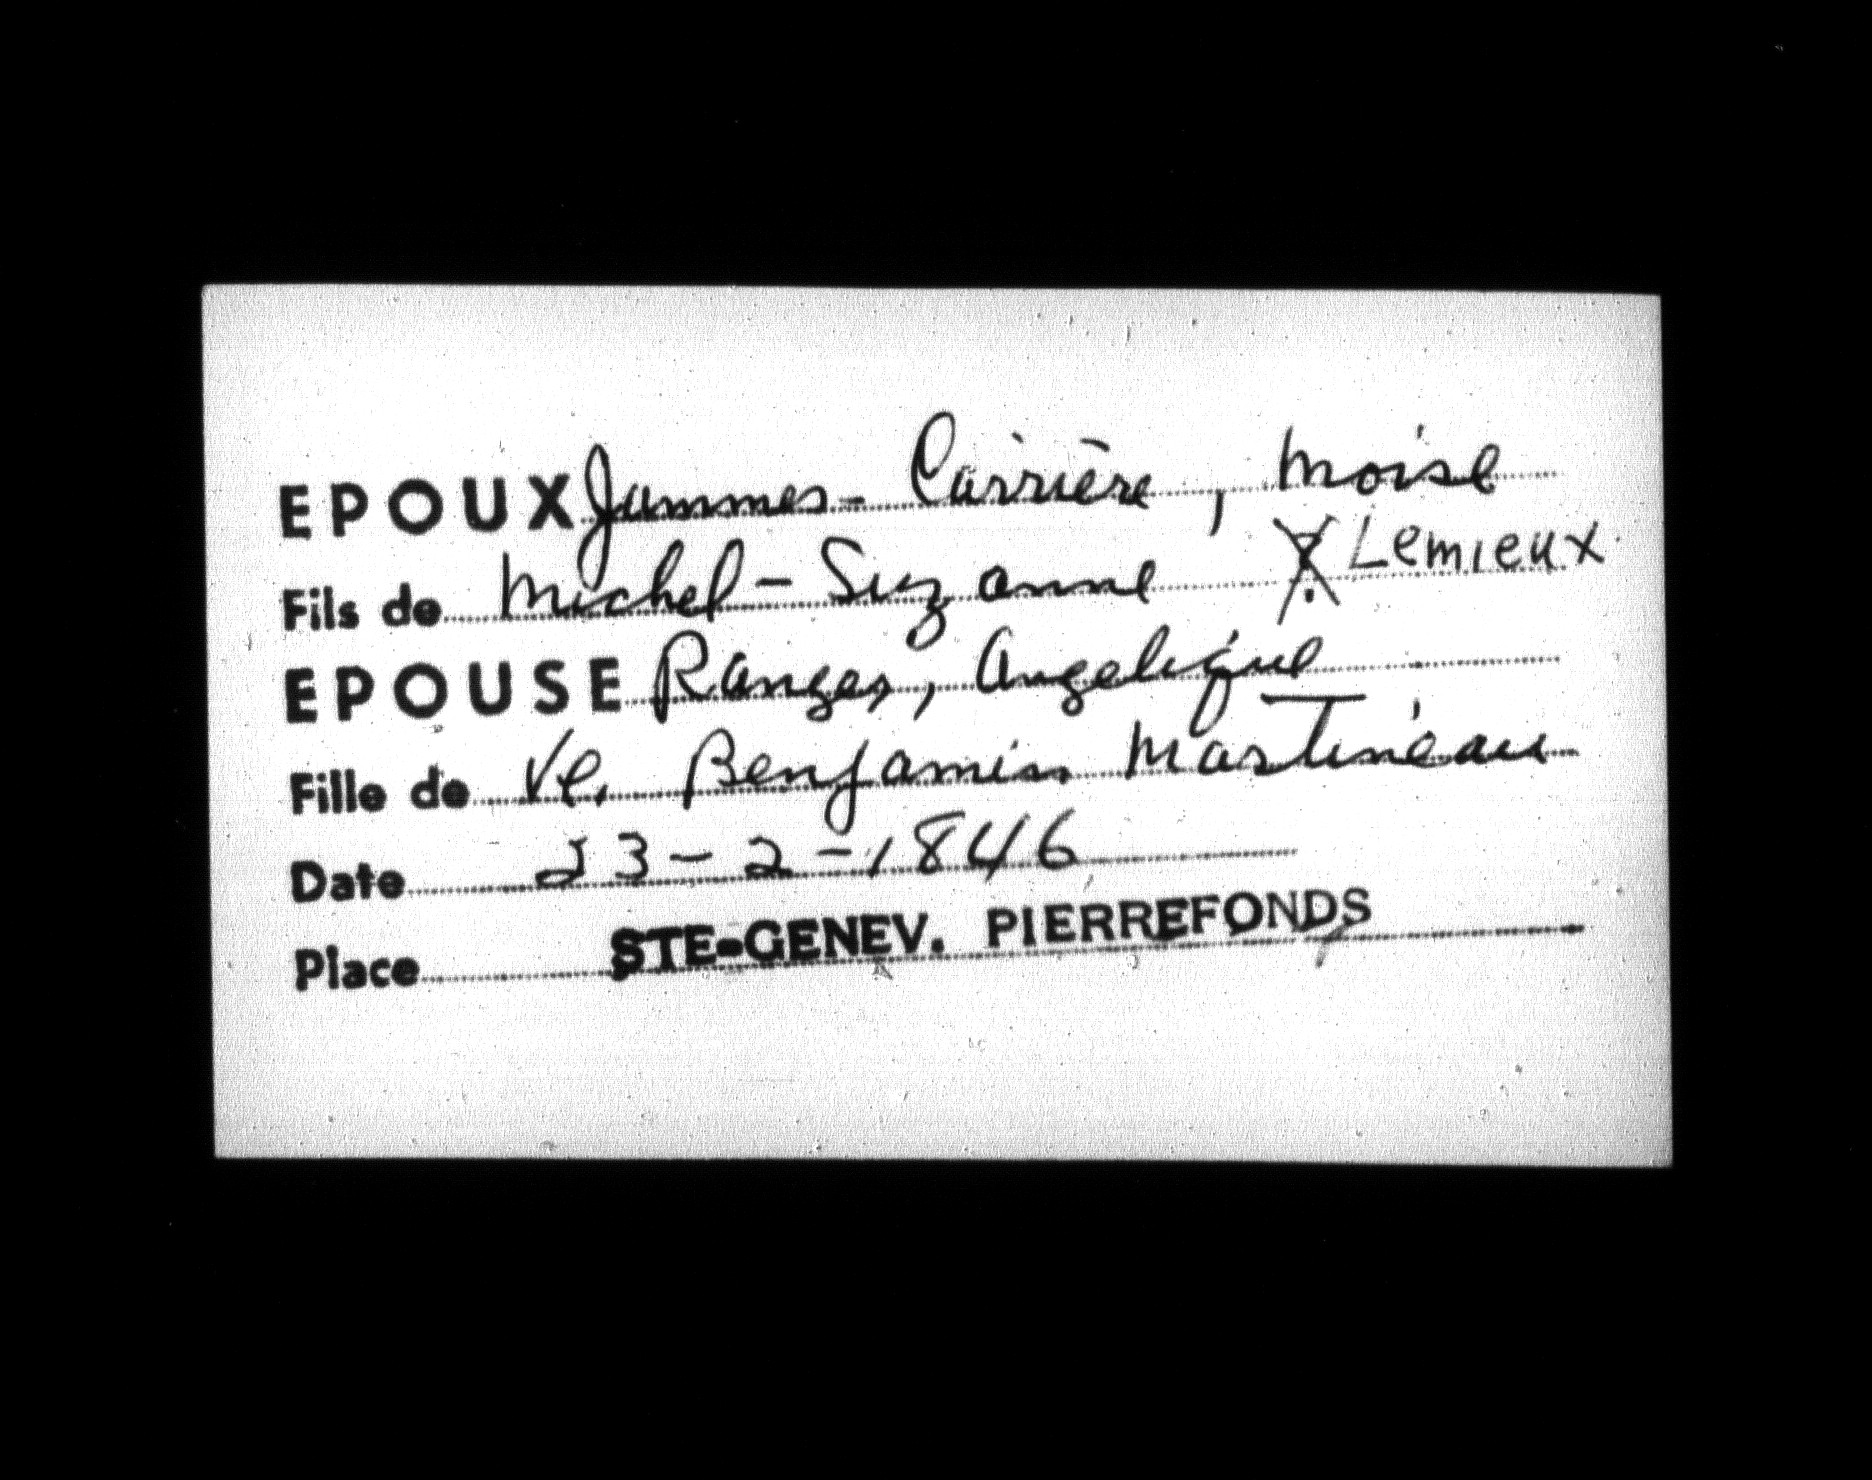 EPOUX Jammes - Carrière, Moise
Fils de Michel - Suzanne ? Lemieux
EPOUSE Ranger, Angelique
Fille de Ve. Benjamin Martineau
Date 23-2-1846
Place STE-GENEV. PIERREFONDS